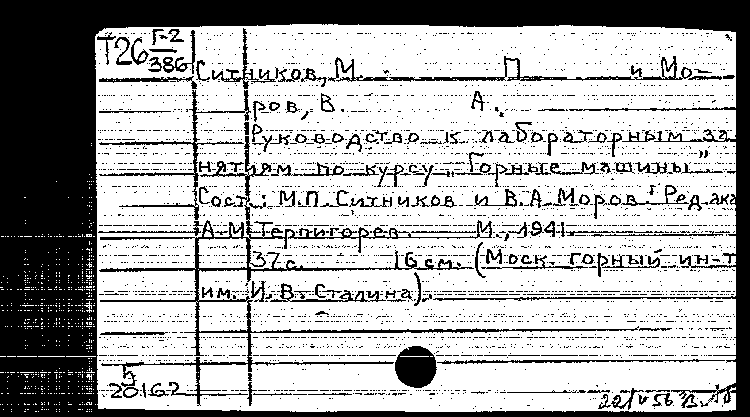 Т26 Г-2
386
Ситников, М. П и Мо-
ров, В. А.
Руководство к лабораторным за
нятиям по курсу „Горные машины"
Сост.: М.П. Ситников и В.А. Моров. Ред. ака
А.М. Терпигорев. М., 1941.
37 с. 16 см. (Моск. горный ин-т
им. И. В. Сталина).
Б
20162
22/V 56